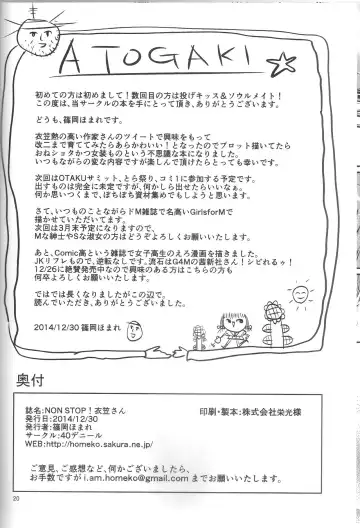 ATOGAKI
初めての方は初めまして！数回目の方は投げキッス＆ソウルメイト！
この度は、当サークルの本を手にとって頂き、ありがとうございます。
どうも、篠岡ほまれです。
衣笠熱の高い作家さんのツイートで興味をもって
改二まで育ててみたらあらかわいい！となったのでプロット描いてたら
おねショタかつ女装ものという不思議な本になりました。
いつもながらの変な内容ですが楽しんで頂けたらとっても幸いです。
次回はOTAKUサミット、とら祭り、コミ1に参加する予定です。
出すものは完全に未定ですが、何かしら出せたらいいなぁ。
何か思いつくまで、ぼちぼち資材集めでもしようと思います。
さて、いつものことながらドM雑誌で名高いGirlsforMで
描かせていただいてます。
次回は3月末予定になりますので、
Mな紳士やSな淑女の方はどうぞよろしくお願いいたします。
あと、Comic高という雑誌で女子高生のえろ漫画を描きました。
JKリフレもので、逆転なしです。流石はG4Mの茜新社さん！シビれるゥ！
12/26に絶賛発売中なので興味のある方はこちらの方も
何卒よろしくお願いいたします。
ではでは長くなりましたがこの辺で。
読んでいただき、ありがとうございました。
2014/12/30 篠岡ほまれ
奥付
誌名:NON STOP！衣笠さん
発行日:2014/12/30
発行者:篠岡ほまれ
サークル:40デニール
WEB:http://homeko.sakura.ne.jp/
印刷・製本：株式会社栄光様
ご意見、ご感想など、何かございましたら、
お手数ですが i.am.homeko@gmail.com までお願いします。
20